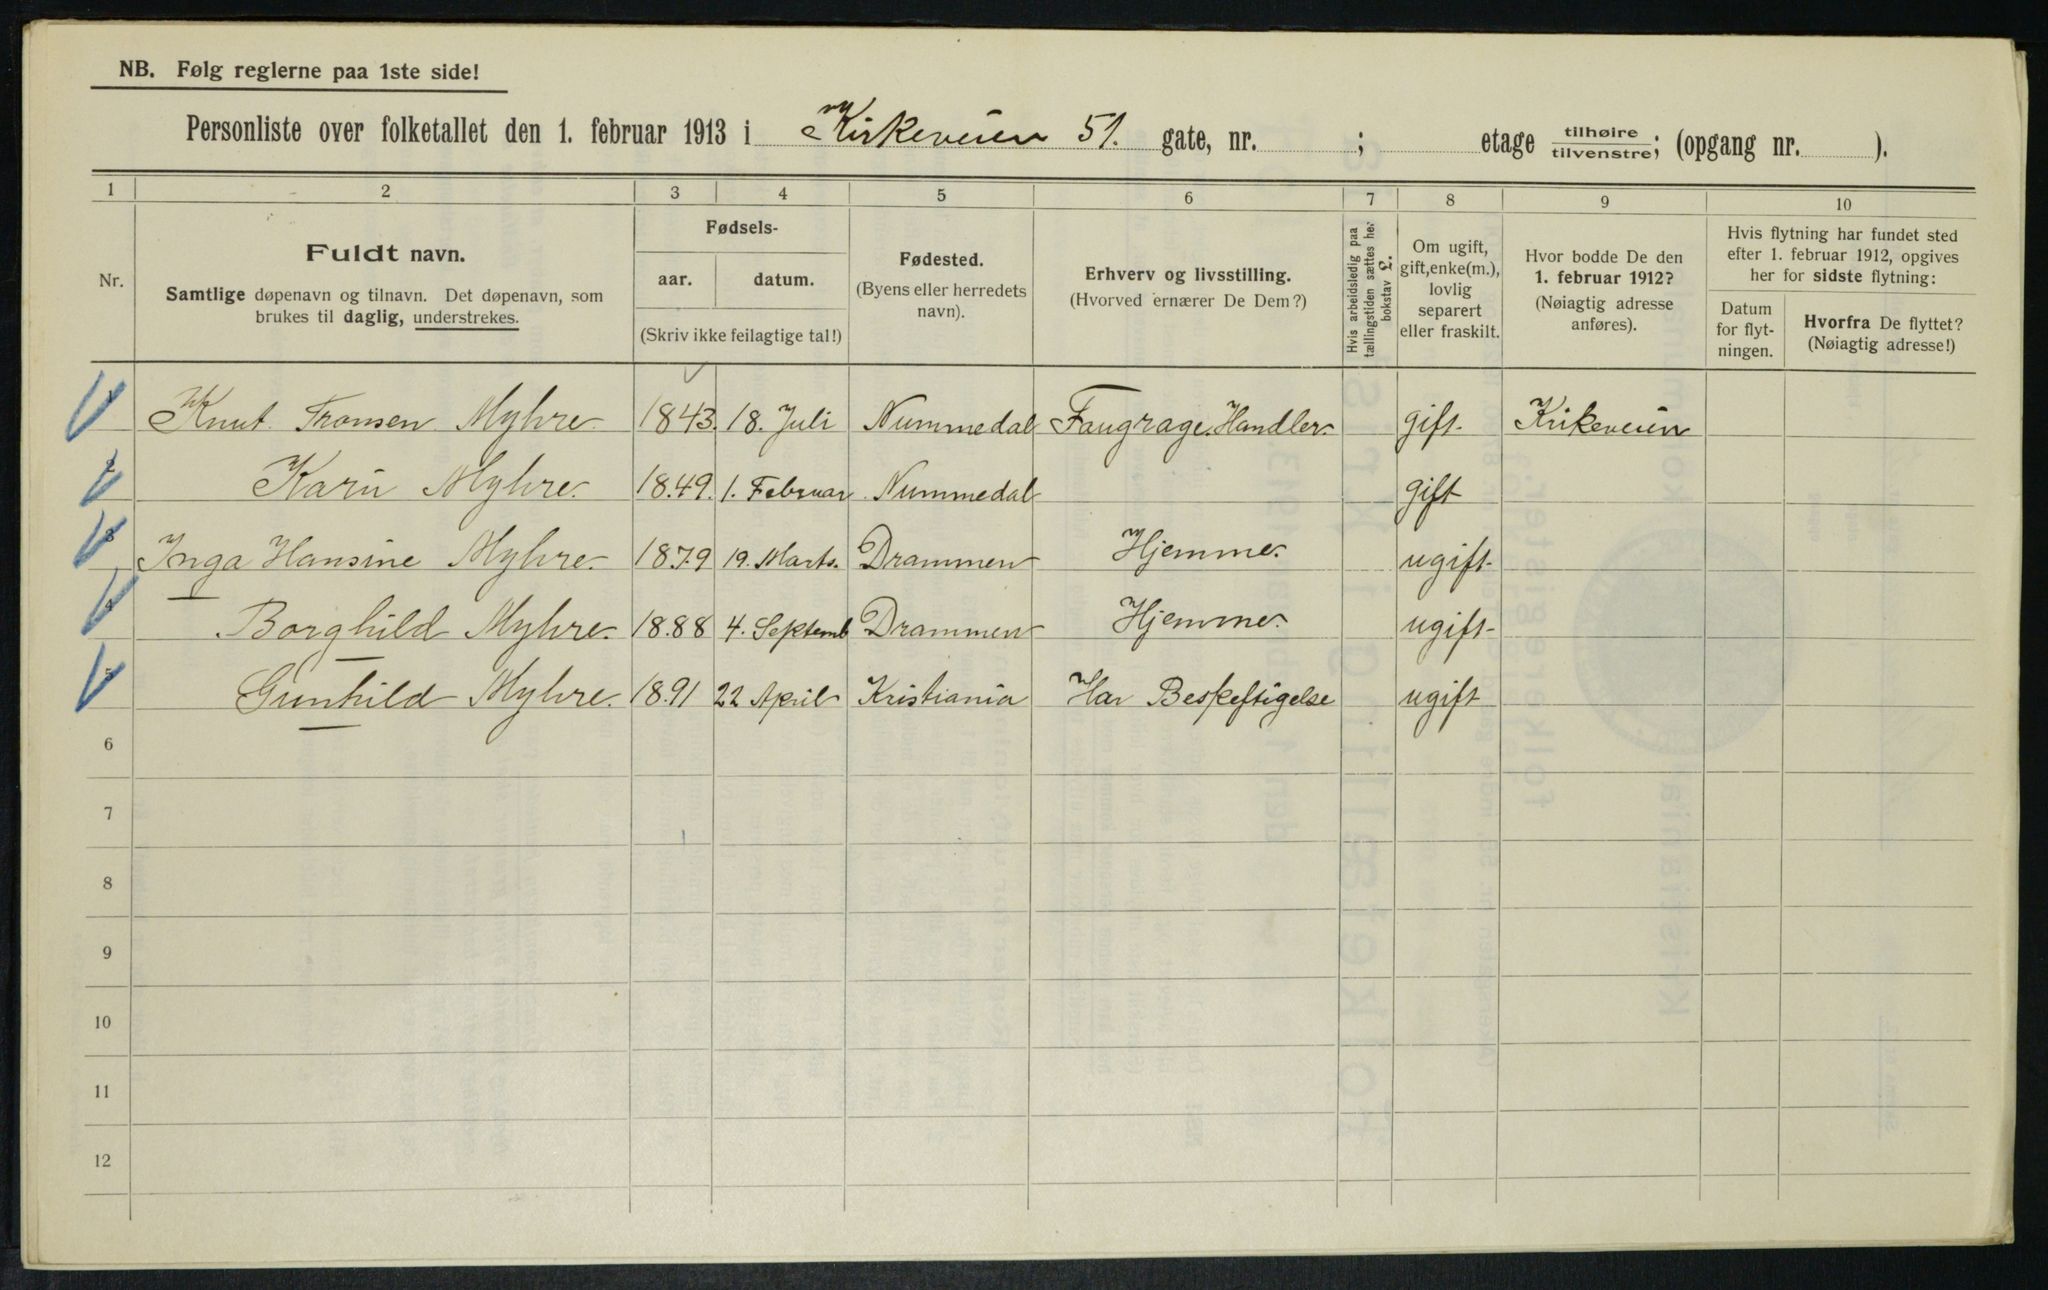 NB. Følg reglerne paa 1ste side!
Personliste over folketallet den 1. februar 1913 i Kirkeveien 51. gate, nr. ; etage tilhøire/tilvenstre; (opgang nr. ).
1 2 3 4 5 6 7 8 9 10
Nr.
Fuldt navn.
Samtlige døpenavn og tilnavn. Det døpenavn, som
brukes til daglig, understrekes.
Fødsels-
aar. datum.
(Skriv ikke feilagtige tal!)
Fødested.
(Byens eller herredets
navn).
Erhverv og livsstilling.
(Hvorved ernærer De Dem?)
Hvis arbeidsledig paa
tællingstiden sættes her
bokstav L.
Om ugift,
gift, enke(m.),
lovlig
separert
eller fraskilt.
Hvor bodde De den
1. februar 1912?
(Nøiagtig adresse
anføres).
Hvis flytning har fundet sted
efter 1. februar 1912, opgives
her for sidste flytning:
Datum
for flyt-
ningen.
Hvorfra De flyttet?
(Nøiagtig adresse!)
1 Knut Tronsen Myhre. 1843. 18. Juli Nummedal Faugrage Handler. gift. Kirkeveien
2 Kari Myhre. 1849. 1. Februar Nummedal gift
3 Inga Hansine Myhre. 1879 19. Marts. Drammen Hjemme. ugift
4 Borghild Myhre. 1888 4. Septemb Drammen Hjemme. ugift
5 Gunhild Myhre. 1891 22 April Kristiania Har Beskeftigelse ugift
6
7
8
9
10
11
12